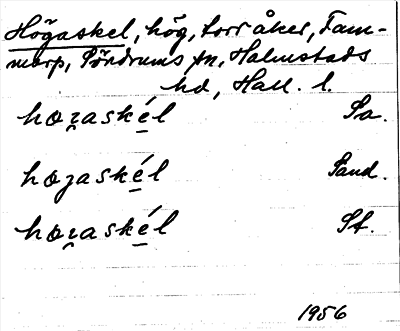 Högaskel, hög, torr åker, Tam-
marp, Söndrums sn, Halmstads
hd, Hall. l.
hoʒaskél Sa.
hoʒaskél Sand.
hoʒaskél St.
1956